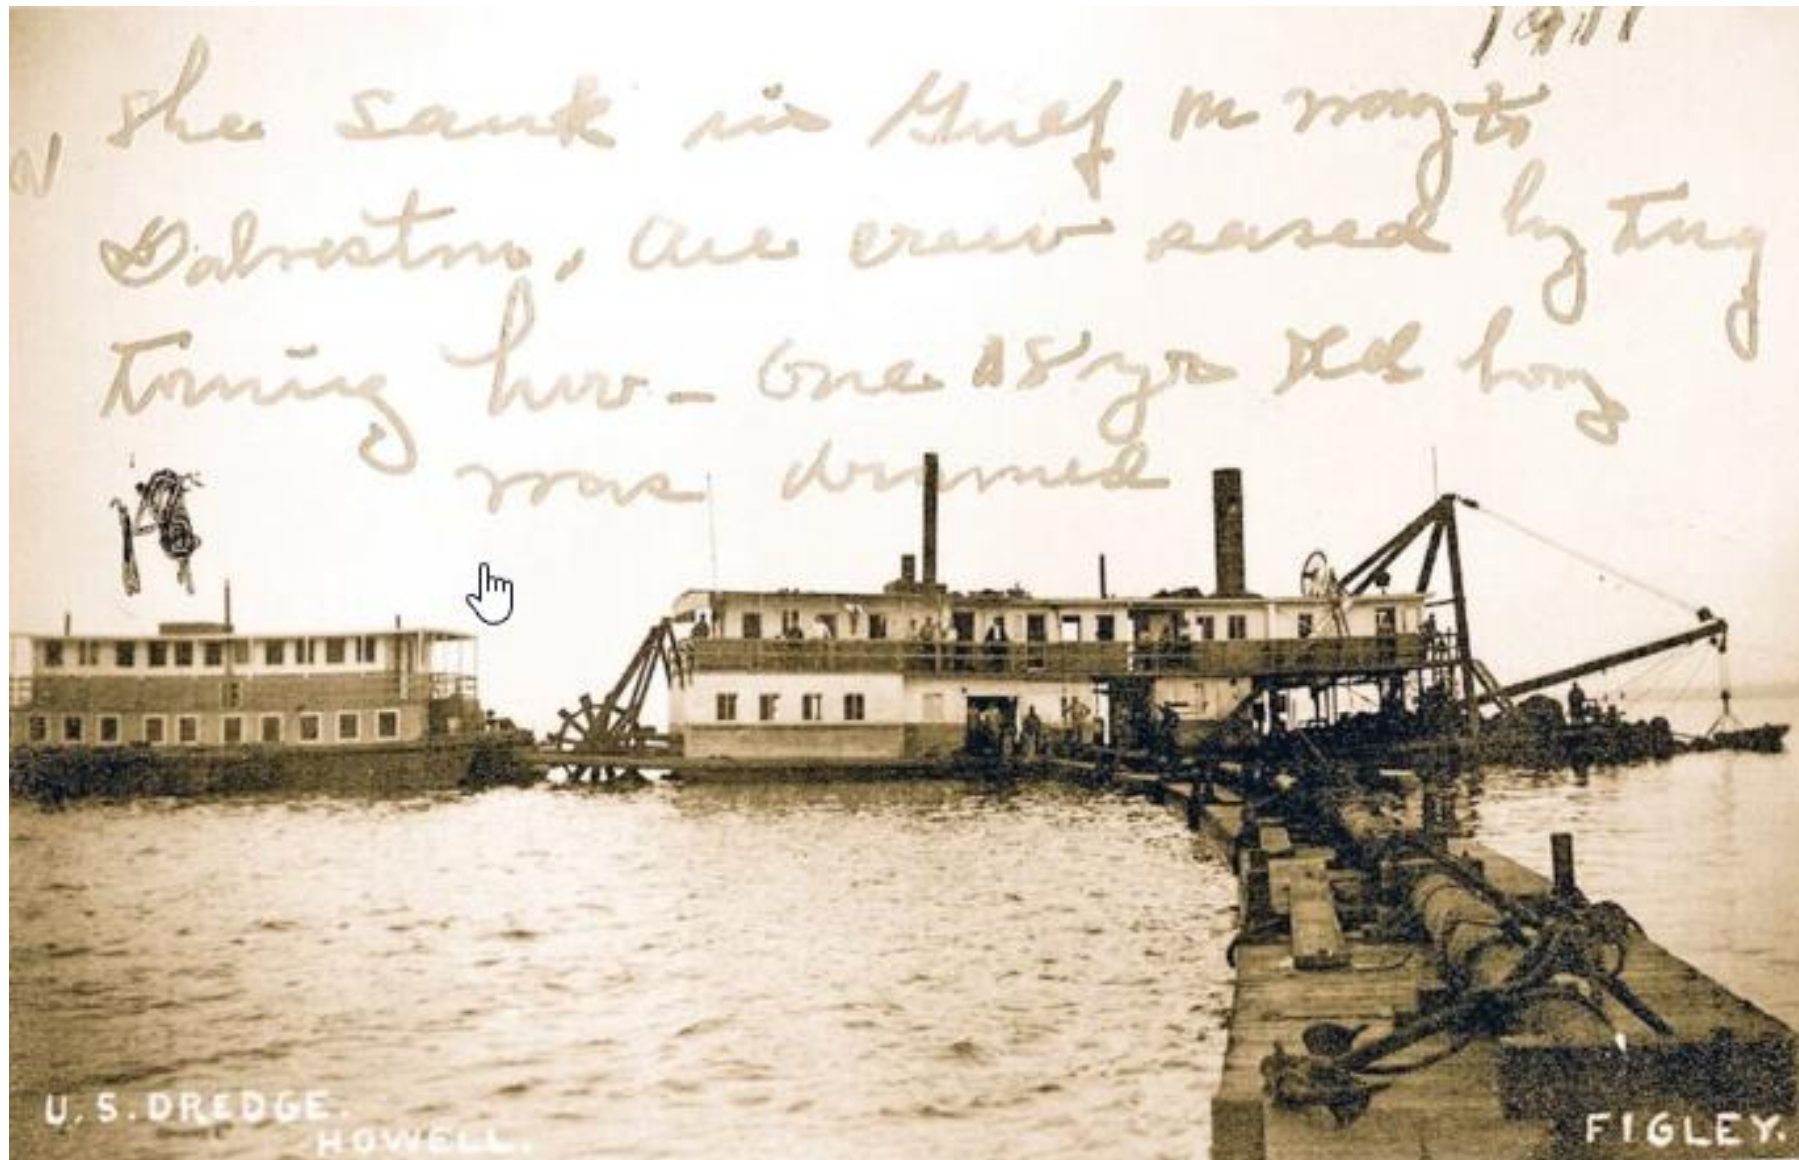 1911
she sank in Gulf on way to
Galveston, all crew saved by tug
towing her - One 18 yr old boy
was drowned
U.S. DREDGE.
HOWELL.
FIGLEY.